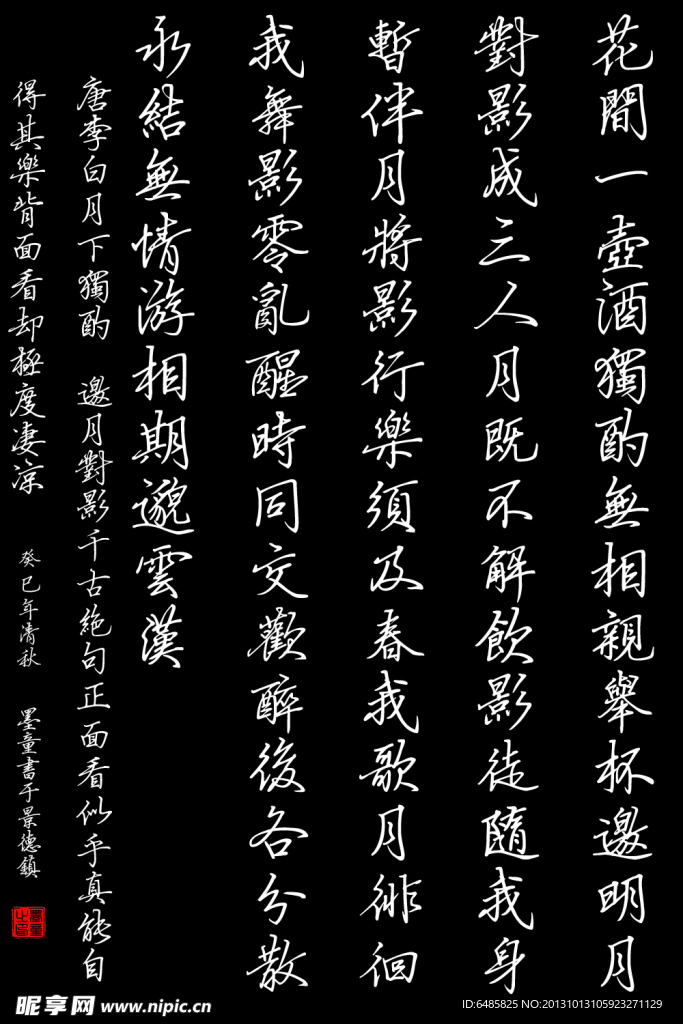 花間一壺酒獨酌無相親舉杯邀明月
對影成三人月既不解飲影徒隨我身
暫伴月將影行樂須及春我歌月徘徊
我舞影零亂醒時同交歡醉後各分散
永結無情游相期邈雲漢
唐李白月下獨酌 邀月對影千古絕句正面看似乎真能自
得其樂背面看却極度凄涼 癸巳年清秋 墨童書于景德鎮
昵享网 www.nipic.cn
ID:6485825 NO:20131013105923271129